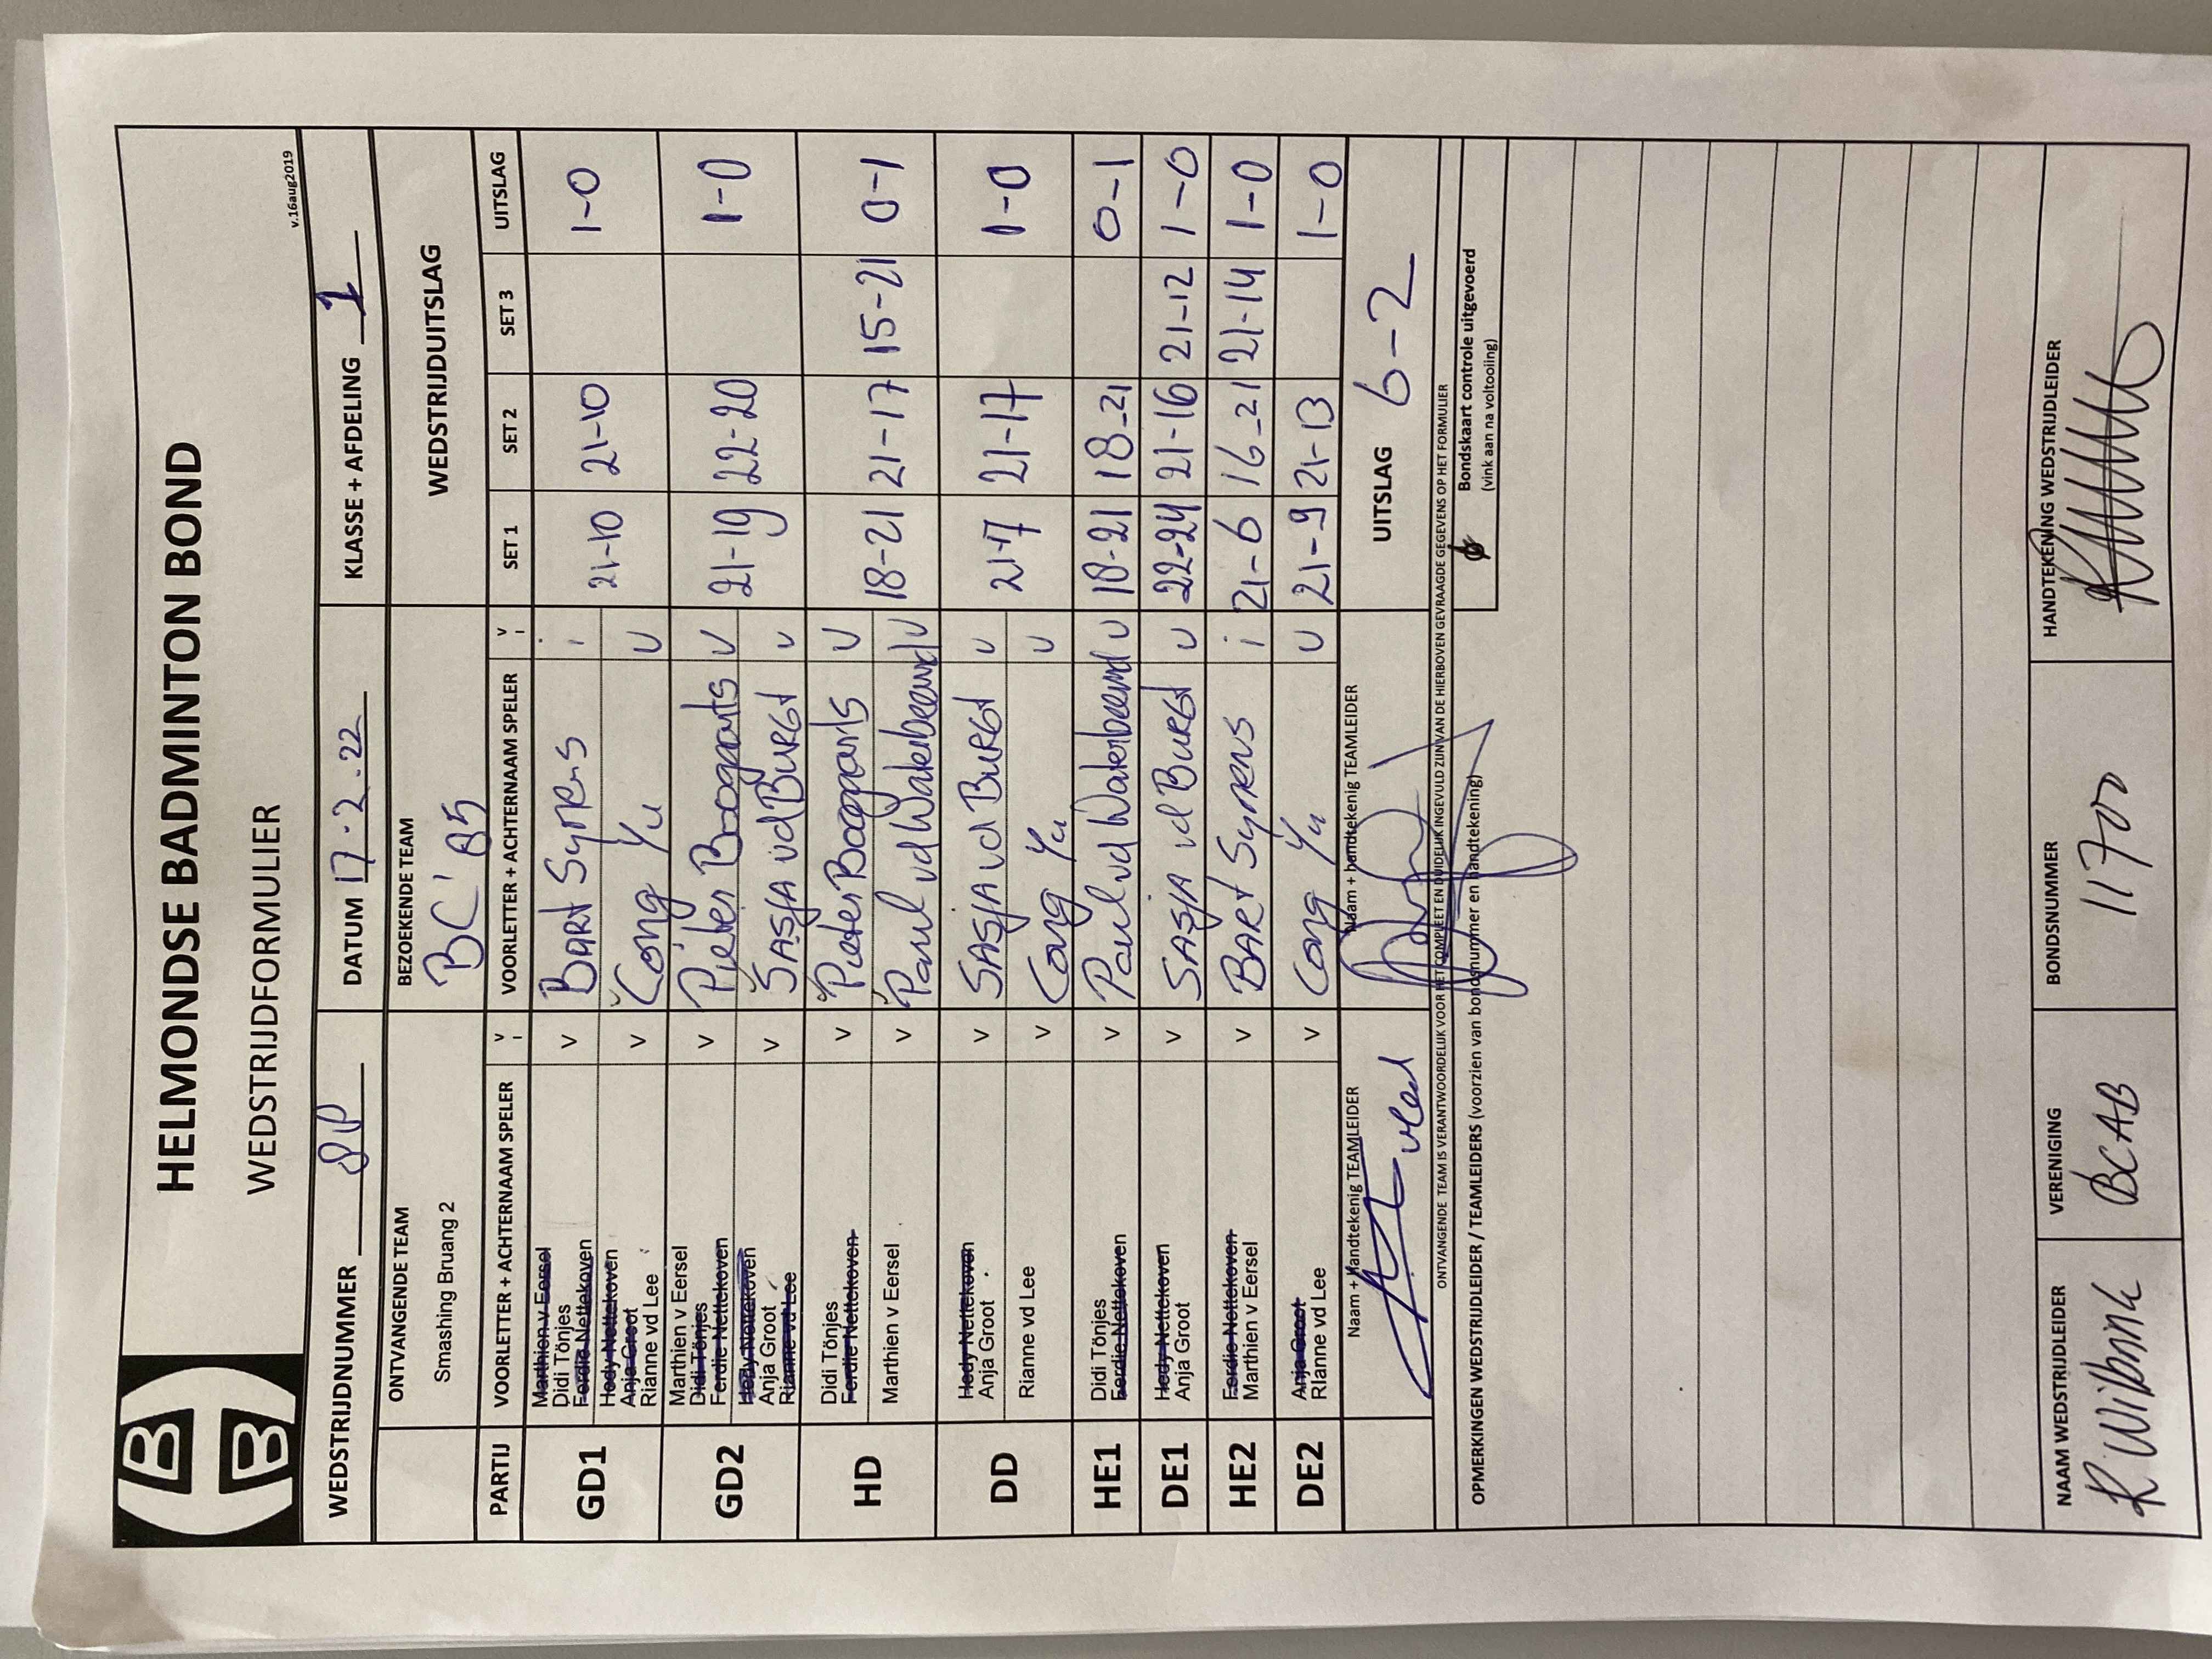 HELMONDSE BADMINTON BOND
WEDSTRIJDFORMULIER
v.16aug2019
WEDSTRIJDNUMMER DATUM 17.2.22 KLASSE + AFDELING 1
ONTVANGENDE TEAM BEZOEKENDE TEAM WEDSTRIJDUITSLAG
Smashing Bruang 2 BC'85
PARTIJ VOORLETTER + ACHTERNAAM SPELER V I VOORLETTER + ACHTERNAAM SPELER V I SET 1 SET 2 SET 3 UITSLAG
GD1
Marthien v Eersel
Didi Tönjes V Bart Synens i
Ferdie Nettekoven
Hedy Nettekoven
Anja Groot
Rianne vd Lee V Cong Yu U
21-10 21-10 1-0
GD2
Marthien v Eersel V Pieter Boogaarts V
Didi Tönjes
Ferdie Nettekoven
Hedy Nettekoven
Anja Groot V SASJA vd BURGT U
Rianne vd Lee
21-19 22-20 1-0
HD
Didi Tönjes V Pieter Boogaarts U
Ferdie Nettekoven
Marthien v Eersel V Paul vd Waterbeemd U
18-21 21-17 15-21 0-1
DD
Hedy Nettekoven
Anja Groot V SASJA vd BURGT U
Rianne vd Lee V Cong Yu U
21-7 21-17 1-0
HE1 Didi Tönjes V Paul vd Waterbeemd U 18-21 18-21 0-1
Ferdie Nettekoven
DE1 Hedy Nettekoven
Anja Groot V SASJA vd BURGT U 22-24 21-16 21-12 1-0
HE2 Ferdie Nettekoven
Marthien v Eersel V BARt Synens i 21-6 16-21 21-14 1-0
DE2 Anja Groot
RIanne vd Lee V Cong Yu U 21-9 21-13 1-0
Naam + Handtekenig TEAMLEIDER Naam + handtekenig TEAMLEIDER UITSLAG 6-2
ONTVANGENDE TEAM IS VERANTWOORDELIJK VOOR HET COMPLEET EN DUIDELIJK INGEVULD ZIJN VAN DE HIERBOVEN GEVRAAGDE GEGEVENS OP HET FORMULIER
OPMERKINGEN WEDSTRIJDLEIDER / TEAMLEIDERS (voorzien van bondsnummer en handtekening)
Bondskaart controle uitgevoerd
(vink aan na voltooiing)
NAAM WEDSTRIJDLEIDER VERENIGING BONDSNUMMER HANDTEKENING WEDSTRIJDLEIDER
R Wilbrink BCAB 11700